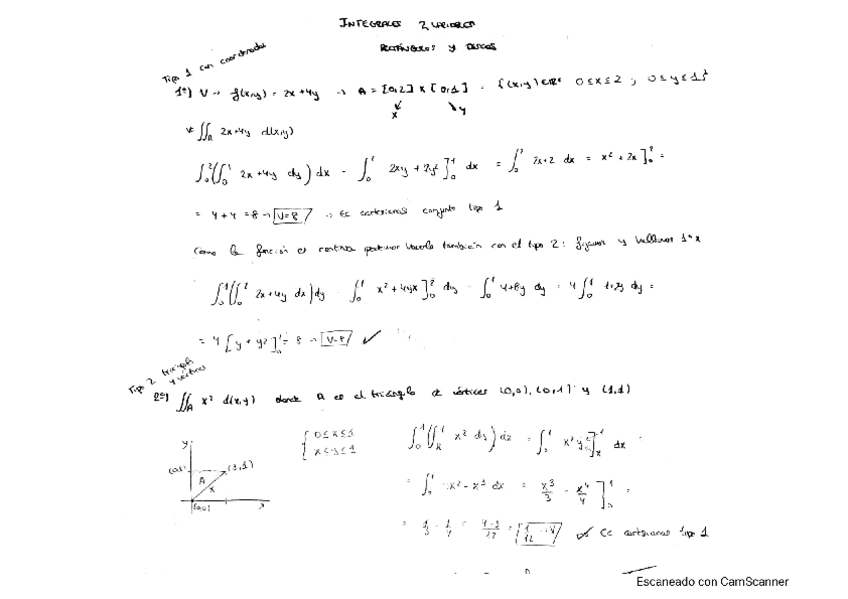 INTEGRALES 2 VARIABLES
RECTÁNGULOS Y
Tipo 1 con coordenadas
1º) V → f(x,y) = 2x+4y → A = [0,2] x [0,1] = {(x,y) ∈ R² 0≤x≤2 ; 0≤y≤1}
x y
∬_A 2x+4y d(x,y)
∫_0^2 (∫_0^1 2x+4y dy) dx = ∫_0^2 2xy + 2y² ]_0^1 dx = ∫_0^2 2x+2 dx = x² + 2x ]_0^2 =
= 4+4 = 8 → V=8 → Ec cartesianas conjunto tipo 1
Como la función es continua podemos hacerlo también con el tipo 2: fijamos y hallamos 1º x
∫_0^1 (∫_0^2 2x+4y dx) dy = ∫_0^1 x² + 4yx ]_0^2 dy = ∫_0^1 4+8y dy = 4 ∫_0^1 1+2y dy =
= 4 [y + y²]_0^1 = 8 → V=8 ✓
Tipo 2 triángulo y vértices
2º) ∬_A x² d(x,y) donde A es el triángulo de vértices (0,0), (0,1) y (1,1)
y
(0,1) (1,1)
A
x
(0,0) x
{ 0≤x≤1
x≤y≤1
∫_0^1 (∫_x^1 x² dy) dx = ∫_0^1 x²y ]_x^1 dx =
= ∫_0^1 x² - x³ dx = x³/3 - x⁴/4 ]_0^1 =
= 1/3 - 1/4 = 4-3/12 = 1/12 = V Ec cartesianas tipo 1
Escaneado con CamScanner